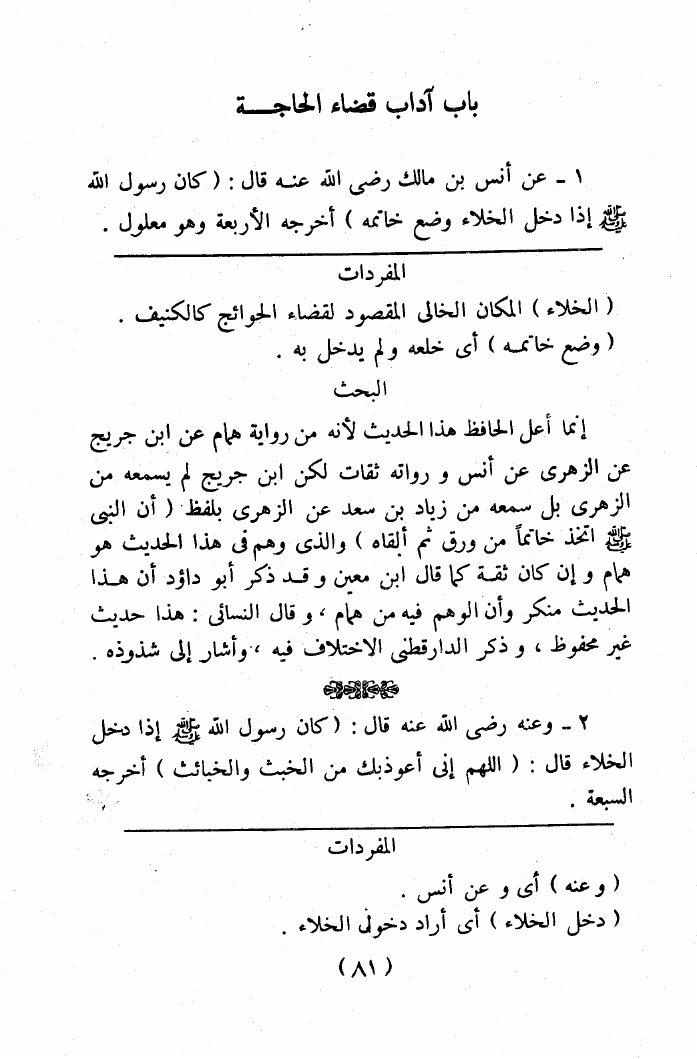 باب آداب قضاء الحاجـــة
١ ـ عن أنس بن مالك رضى الله عنـه قال : ( كان رسول الله
ﷺ إذا دخل الخلاء وضع خاتمه ) أخرجه الأربعة وهو معلول .
المفردات
( الخلاء ) المكان الخالى المقصود لقضاء الحوائج كالكنيف .
( وضع خاتمـه ) أى خلعه ولم يدخل به .
البحث
إنما أعل الحافظ هذا الحديث لأنه من رواية همام عن ابن جريج
عن الزهرى عن أنس و رواته ثقات لكن ابن جريج لم يسمعه من
الزهرى بل سمعه من زياد بن سعد عن الزهرى بلفظ ( أن النبى
ﷺ اتخذ خاتماً من ورق ثم ألقاه ) والذى وهم فى هذا الحديث هو
همام و إن كان ثقـة كما قال ابن معين و قـد ذكر أبو داؤد أن هـذا
الحديث منكر وأن الوهم فيه من همام ، و قال النسائى : هذا حديث
غير محفوظ ، و ذكر الدارقطنى الاختلاف فيه ، وأشار إلى شذوذه .
٢ ـ وعنه رضى الله عنه قال : ( كان رسول الله ﷺ إذا دخل
الخلاء قال : ( اللهم إنى أعوذبك من الخبث والخبائث ) أخرجه
السبعة .
المفردات
( و عنه ) أى و عن أنس .
( دخل الخلاء ) أى أراد دخول الخلاء .
( ٨١ )